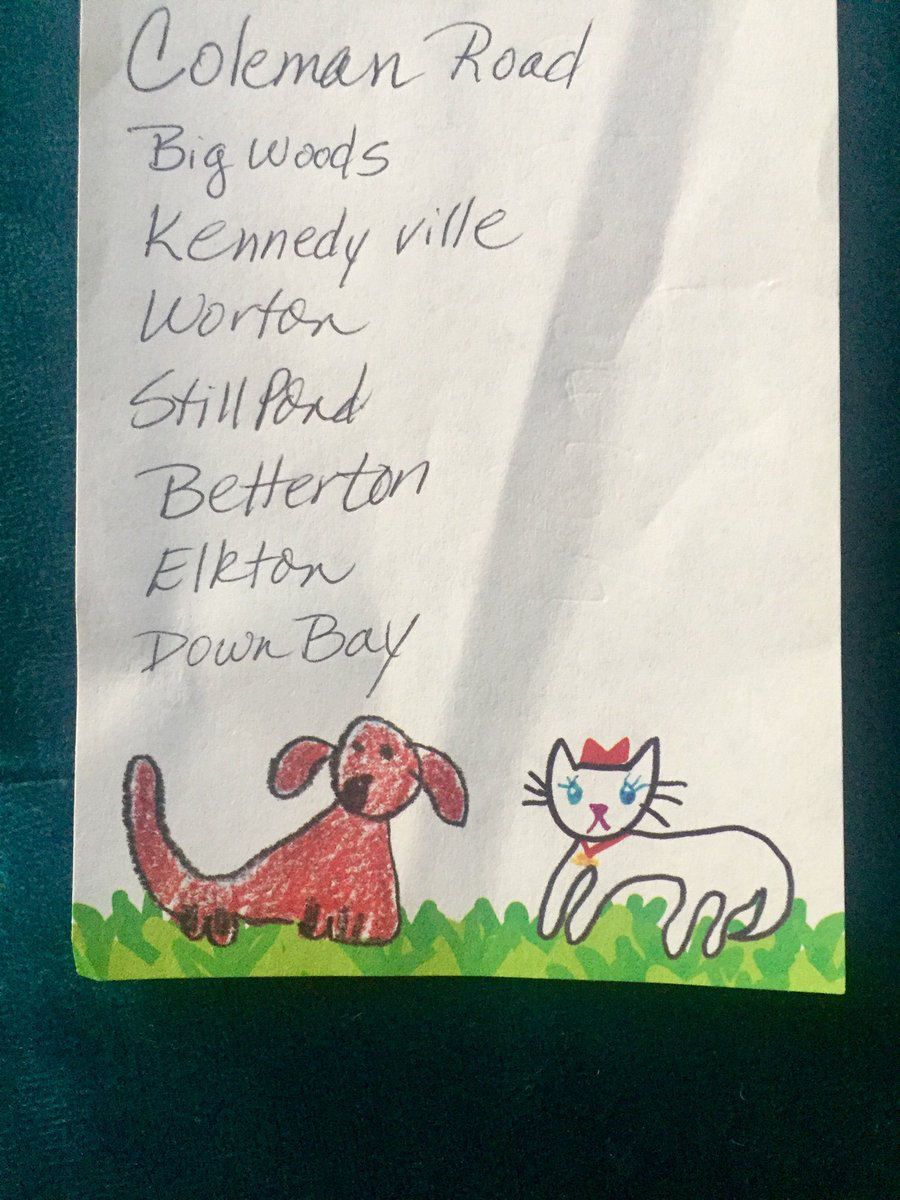 Coleman Road
Big Woods
Kennedy ville
Worton
Still Pond
Betterton
Elkton
Down Bay